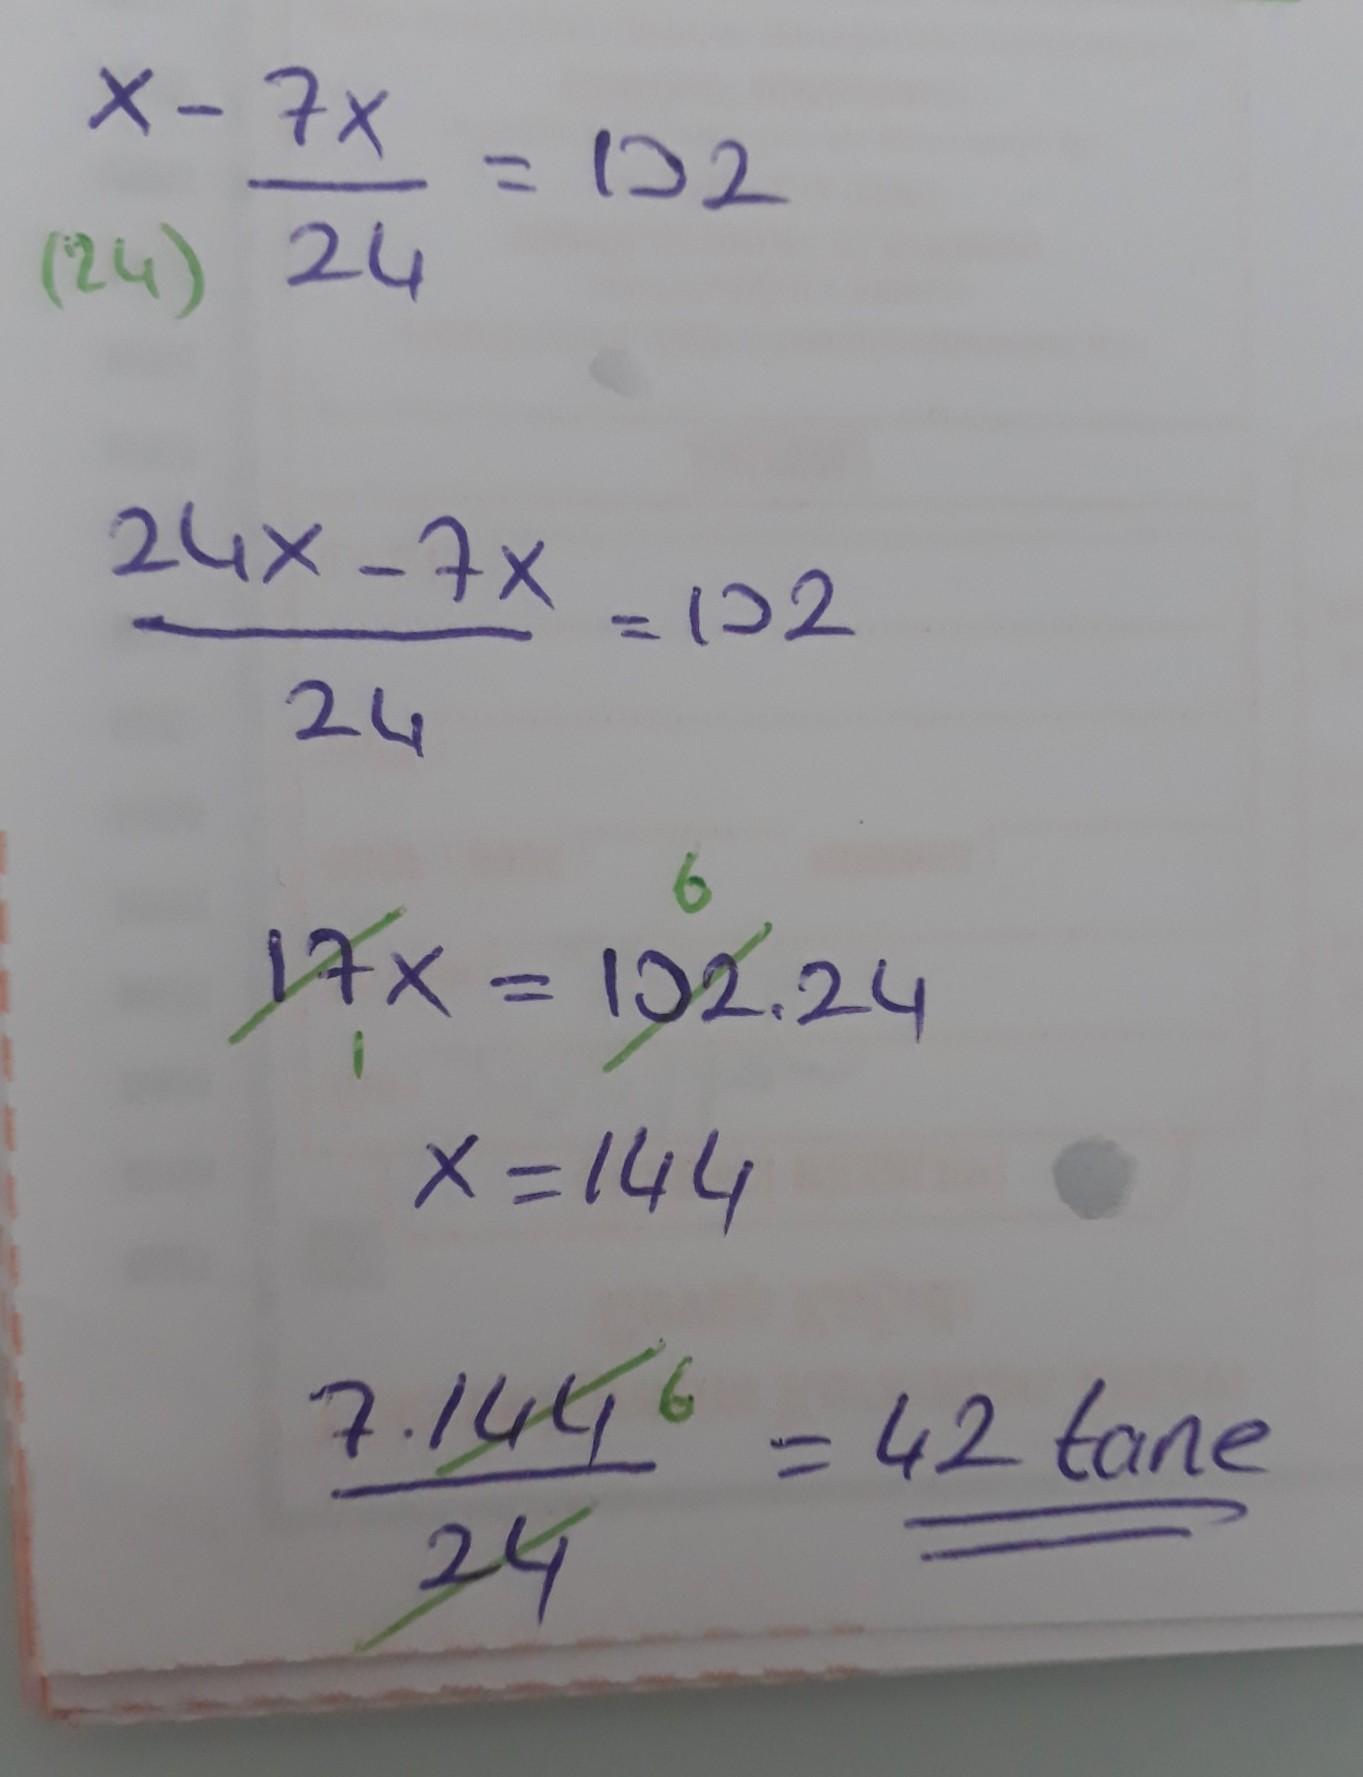 x - 7x/24 = 102
(24)
24x - 7x / 24 = 102
6
17x = 102.24
1
x = 144
7.144 / 24 = 42 tane
6